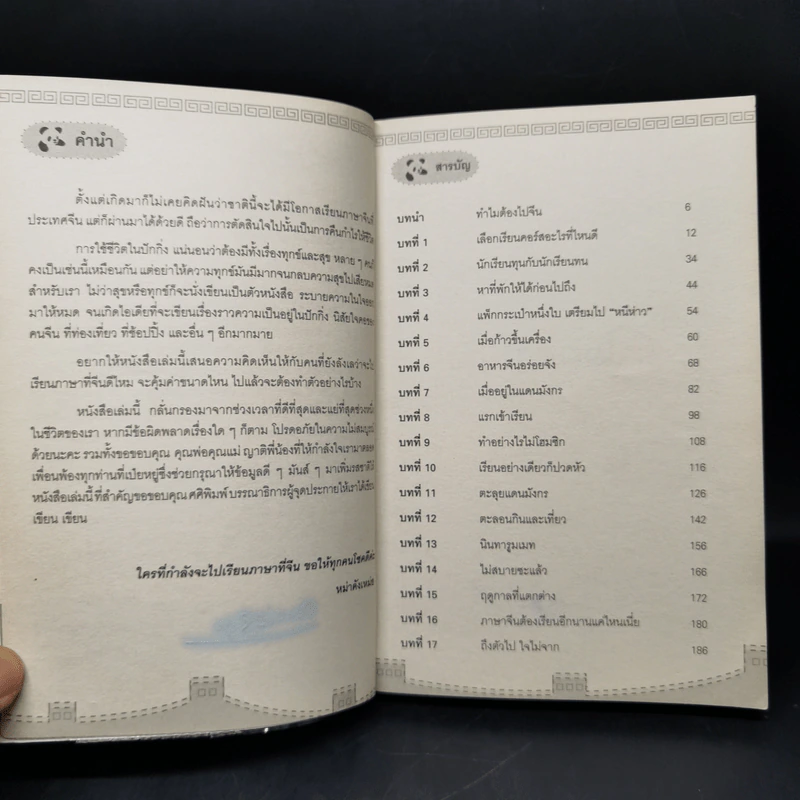 คำนำ
ตั้งแต่เกิดมาก็ไม่เคยคิดฝันว่าชาตินี้จะได้มีโอกาสเรียนภาษาจีนที่
ประเทศจีน แต่ก็ผ่านมาได้ด้วยดี ถือว่าการตัดสินใจไปนั้นเป็นการคืนกำไรให้ชีวิต
การใช้ชีวิตในปักกิ่ง แน่นอนว่าต้องมีทั้งเรื่องทุกข์และสุข หลาย ๆ คนก็
คงเป็นเช่นนี้เหมือนกัน แต่อย่าให้ความทุกข์มันมีมากจนกลบความสุขไปเสียหมด
สำหรับเรา ไม่ว่าสุขหรือทุกข์ก็จะนั่งเขียนเป็นตัวหนังสือ ระบายความในใจออก
มาให้หมด จนเกิดไอเดียที่จะเขียนเรื่องราวความเป็นอยู่ในปักกิ่ง นิสัยใจคอของ
คนจีน ที่ท่องเที่ยว ที่ช้อปปิ้ง และอื่น ๆ อีกมากมาย
อยากให้หนังสือเล่มนี้เสนอความคิดเห็นให้กับคนที่ยังลังเลว่าจะไป
เรียนภาษาที่จีนดีไหม จะคุ้มค่าขนาดไหน ไปแล้วจะต้องทำตัวอย่างไรบ้าง
หนังสือเล่มนี้ กลั่นกรองมาจากช่วงเวลาที่ดีที่สุดและแย่ที่สุดช่วงหนึ่ง
ในชีวิตของเรา หากมีข้อผิดพลาดเรื่องใด ๆ ก็ตาม โปรดอภัยในความไม่สมบูรณ์
ด้วยนะคะ รวมทั้งขอขอบคุณ คุณพ่อคุณแม่ ญาติพี่น้องที่ให้กำลังใจเรามาตลอด
เพื่อนพ้องทุกท่านที่เป่ยหยู่ซึ่งช่วยกรุณาให้ข้อมูลดี ๆ มันส์ ๆ มาเพิ่มรสชาติให้
หนังสือเล่มนี้ ที่สำคัญขอขอบคุณ ศศิพิมพ์ บรรณาธิการผู้จุดประกายให้เราได้เขียน
เขียน เขียน
ใครที่กำลังจะไปเรียนภาษาที่จีน ขอให้ทุกคนโชคดีค่ะ
สารบัญ
บทนำ ทำไมต้องไปจีน 6
บทที่ 1 เลือกเรียนคอร์สอะไรที่ไหนดี 12
บทที่ 2 นักเรียนทุนกับนักเรียนทน 34
บทที่ 3 หาที่พักให้ได้ก่อนไปถึง 44
บทที่ 4 แพ็กกระเป๋าหนึ่งใบ เตรียมไป “หนีห่าว” 54
บทที่ 5 เมื่อก้าวขึ้นเครื่อง 60
บทที่ 6 อาหารจีนอร่อยจัง 68
บทที่ 7 เมื่ออยู่ในแดนมังกร 82
บทที่ 8 แรกเข้าเรียน 98
บทที่ 9 ทำอย่างไรไม่โฮมซิก 108
บทที่ 10 เรียนอย่างเดียวก็ปวดหัว 116
บทที่ 11 ตะลุยแดนมังกร 126
บทที่ 12 ตะลอนกินและเที่ยว 142
บทที่ 13 นินทารูมเมท 156
บทที่ 14 ไม่สบายซะแล้ว 166
บทที่ 15 ฤดูกาลที่แตกต่าง 172
บทที่ 16 ภาษาจีนต้องเรียนอีกนานแค่ไหนเนี่ย 180
บทที่ 17 ถึงตัวไป ใจไม่จาก 186